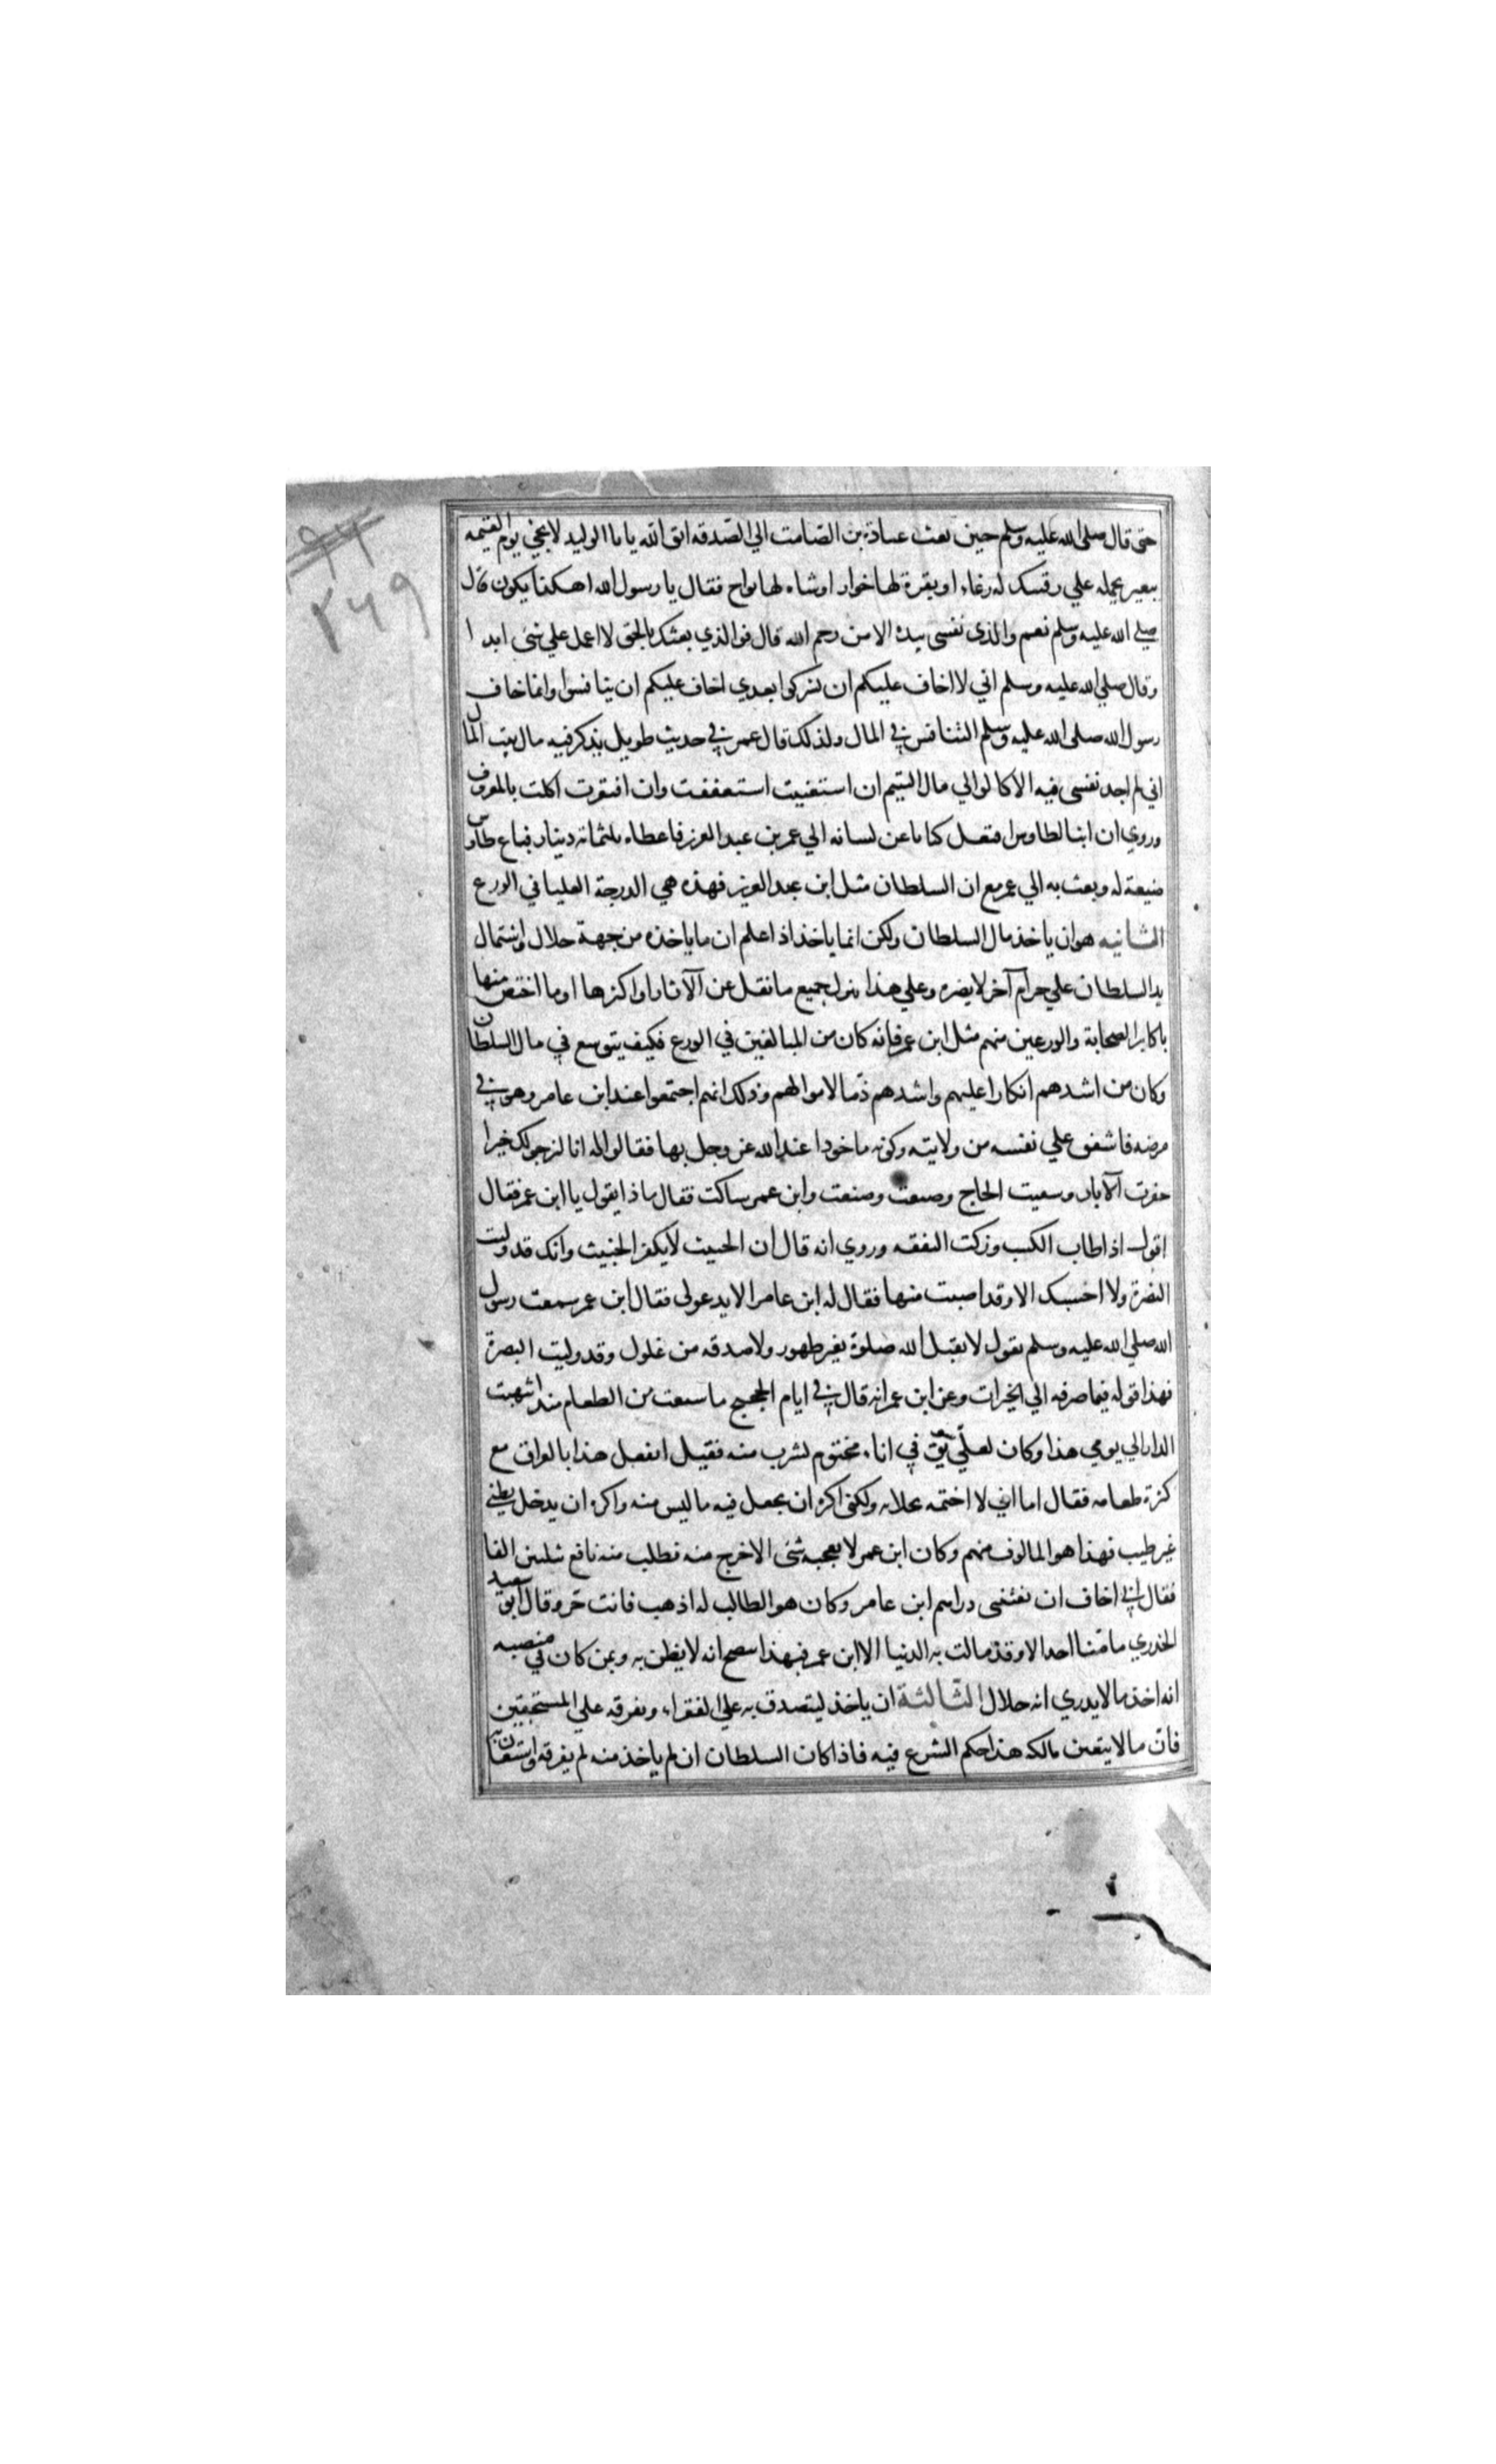 ٩٩
٢٦٩
حتى قال صلى الله عليه وسلم حين بعث عبادة بن الصامت الي الصدقه اتق الله يابا الوليد لا تجئ يوم القيمه
ببعير تحمله علي رقبتك له رغاء او بقرة لها خوار او شاه لها ثواج فقال يا رسول الله اهكذا يكون قال
صلي الله عليه وسلم نعم والذي نفسى بيده الا من رحم الله قال فوالذي بعثك بالحق لا اعمل علي شئ ابدا
وقال صلي الله عليه وسلم اني لا اخاف عليكم ان تشركوا بعدي اخاف عليكم ان يتنافسوا وانما خاف
رسول الله صلى الله عليه وسلم التنافس في المال ولذلك قال عمر في حديث طويل يذكر فيه مال بيت المال
اني لم اجد نفسى فيه الا كالوالي مال اليتيم ان استغنيت استعففت وان افتقرت اكلت بالمعروف
وروي ان ابنا لطاوس افتعل كتابا عن لسانه الي عمر بن عبد العزيز فاعطاه ثلثمائة دينار فباع طاوس
ضيعة له وبعث به الي عمر مع ان السلطان مثل ابن عبد العزيز فهذه هي الدرجة العليا في الورع
الثانيه هو ان ياخذ مال السلطان ولكن انما ياخذ اذا علم ان ما ياخذه من جهة حلال واشتمال
يد السلطان علي حرام آخر لا يضره وعلي هذا ينزل جميع ما نقل عن الآثار او اكثرها او ما اختص منها
باكابر الصحابة والورعين منهم مثل ابن عمر فانه كان من المبالغين في الورع فكيف يتوسع في مال السلطان
وكان من اشدهم انكارا عليهم واشدهم ذما لاموالهم وذلك انهم اجتمعوا عند ابن عامر وهو في
مرضه فاشفق علي نفسه من ولايته وكونه ماخوذا عند الله عز وجل بها فقالوا له انا لنرجو لك خيرا
حفرت الآبار وسعيت الحاج وصنعت وصنعت وابن عمر ساكت فقال ماذا يقول يا ابن عمر فقال
اقول اذا طاب الكسب وزكت النفقه وروي انه قال ان الخبيث لا يكفر الخبيث وانك قد وليت
البصرة ولا احسبك الا وقد اصبت منها فقال له ابن عامر الا يدعو لى فقال ابن عمر سمعت رسول
الله صلي الله عليه وسلم يقول لا يقبل الله صلوة بغير طهور ولا صدقه من غلول وقد وليت البصرة
فهذا قوله فيما صرفه الي الخيرات وعن ابن عمر انه قال في ايام الحجيج ما شبعت من الطعام منذ انتهبت
الدار الي يومي هذا وكان لعلي سويق في اناء مختوم يشرب منه فقيل اتفعل هذا بالعراق مع
كثرة طعامه فقال اما اني لا اختمه بخلا به ولكني اكره ان يجعل فيه ما ليس منه واكره ان يدخل بطني
غير طيب فهذا هو المالوف منهم وكان ابن عمر لا يعجبه شئ الا خرج منه فطلب منه نافع بثلثين الفا
فقال اني اخاف ان تفتنني دراهم ابن عامر وكان هو الطالب له اذهب فانت حر وقال ابو سعيد
الخدري ما منا احد الا وقد مالت به الدنيا الا ابن عمر فبهذا يتضح انه لا يظن به وبمن كان في منصبه
انه اخذ ما لا يدري انه حلال الثالثة ان ياخذ ليتصدق به علي الفقراء ويفرقه علي المستحقين
فان ما لا يتعين مالكه هذا حكم الشرع فيه فاذا كان السلطان ان لم ياخذ منه لم يفرقه واستعان به